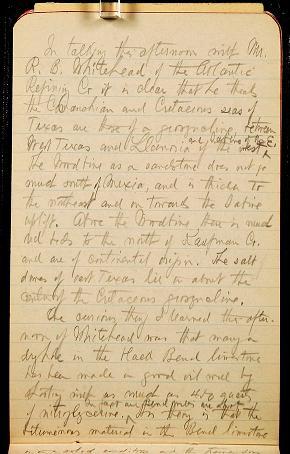 In talking this afternoon with Mr.
R. B. Whitehead of the Atlantic
Refining Co it is clear that he thinks
the Comanchian and Cretaceous seas of
Texas are those of a geosyncline between
West Texas and Llanoria of the
The Woodbine as a sandstone does not go
much south of Mexia, and is thicker to
the northeast and on towards the Sabine
uplift. Above the Woodbine there is much
red beds to the north of Kaufman Co.
and are of continental origin. The salt
domes of east Texas lie in about the
center of the Cretaceous geosyncline.
One curious thing I learned this after-
noon of Whitehead was that many a
dry hole in the Bend limestone
has been made an good oil well by
shooting with as much as 450 quarts
of nitroglycerine. In fact are
His theory is that the
bituminous material in the Bend limestone